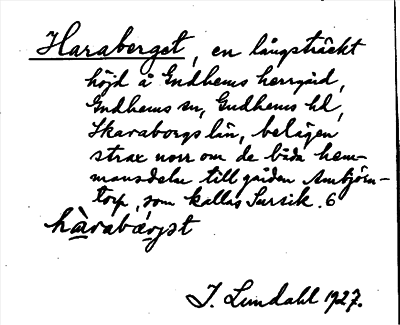 Haraberget, en långsträckt
höjd å Gudhems herrgård,
Gudhems sn, Gudhems hd,
Skaraborgs län, belägen
strax norr om de båda hem-
mansdelar till gården Ambjörn-
torp, som kallas Sursik. 6
hàrabærjst
J. Lundahl 1927.